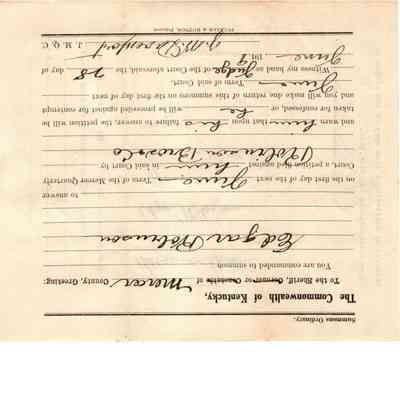 Summons Ordinary.
The Commonwealth of Kentucky,
To the Sheriff, Coroner or Constable of Mercer County, Greeting:
You are commanded to summon
Edgar Robinson
to answer
on the first day of the next June Term of the Mercer Quarterly
Court, a petition filed against him in said Court by
Robinson Bros & Co
and warn him that upon his failure to answer, the petition will be
taken for confessed, or he will be proceeded against for contempt
and you will make due return of this summons on the first day of the next
June Term of said Court.
Witness my hand as Judge of the Court, aforesaid, the 28 day of
June 191
J. M. Q. C.